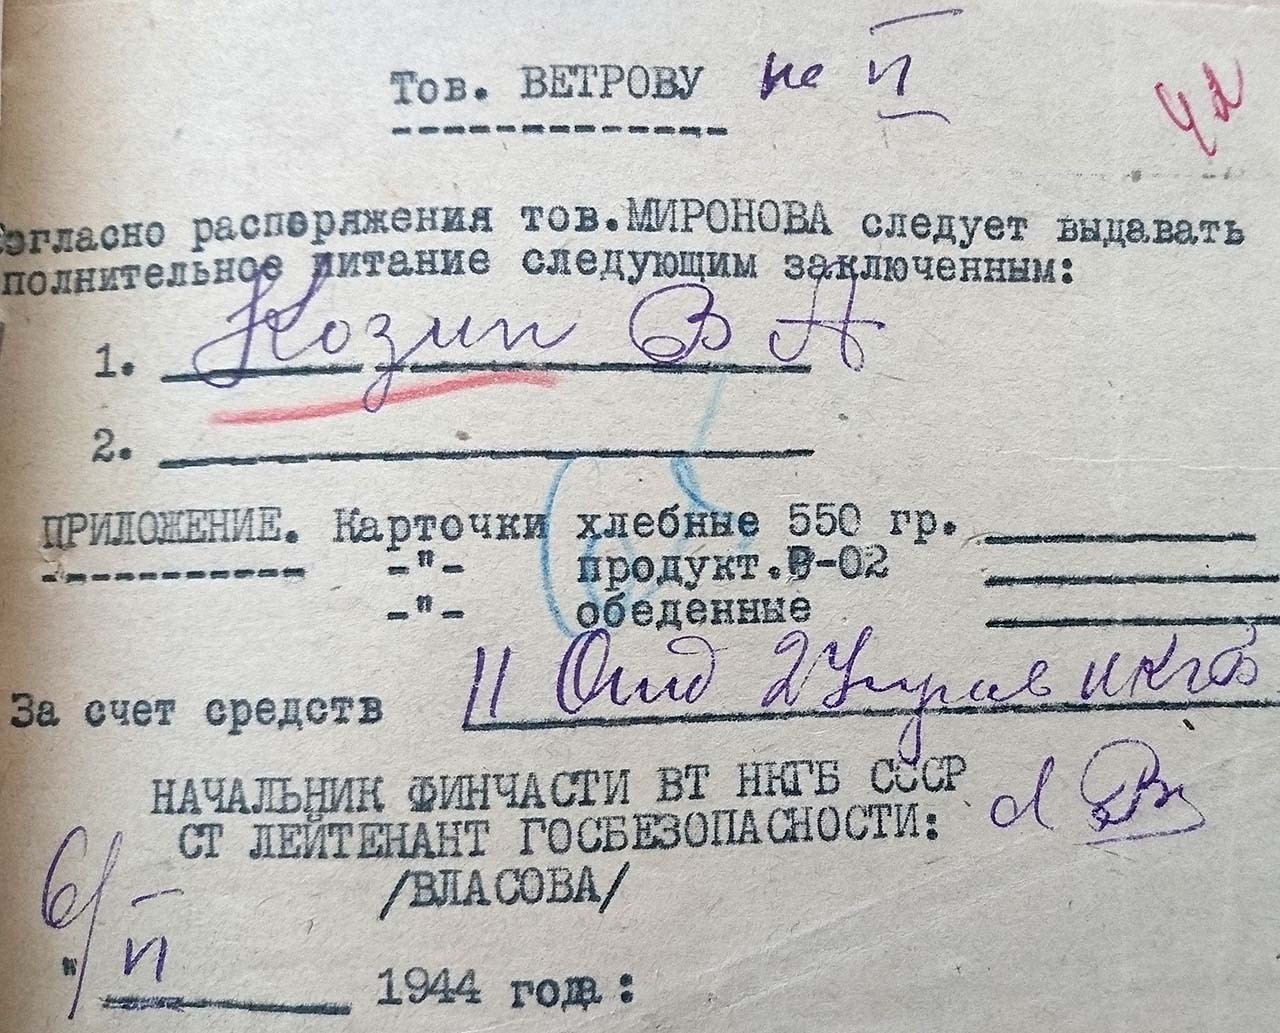 Тов. ВЕТРОВУ на VI
42
Согласно распоряжения тов.МИРОНОВА следует выдавать
полнительное питание следующим заключенным:
1. Козин В А
2.
ПРИЛОЖЕНИЕ. Карточки хлебные 550 гр.
-"- продукт.В-02
-"- обеденные
За счет средств 11 Отд 2 Управ НКГБ
НАЧАЛЬНИК ФИНЧАСТИ ВТ НКГБ СССР
СТ ЛЕЙТЕНАНТ ГОСБЕЗОПАСНОСТИ:
/ВЛАСОВА/
6/VI
" 1944 года: